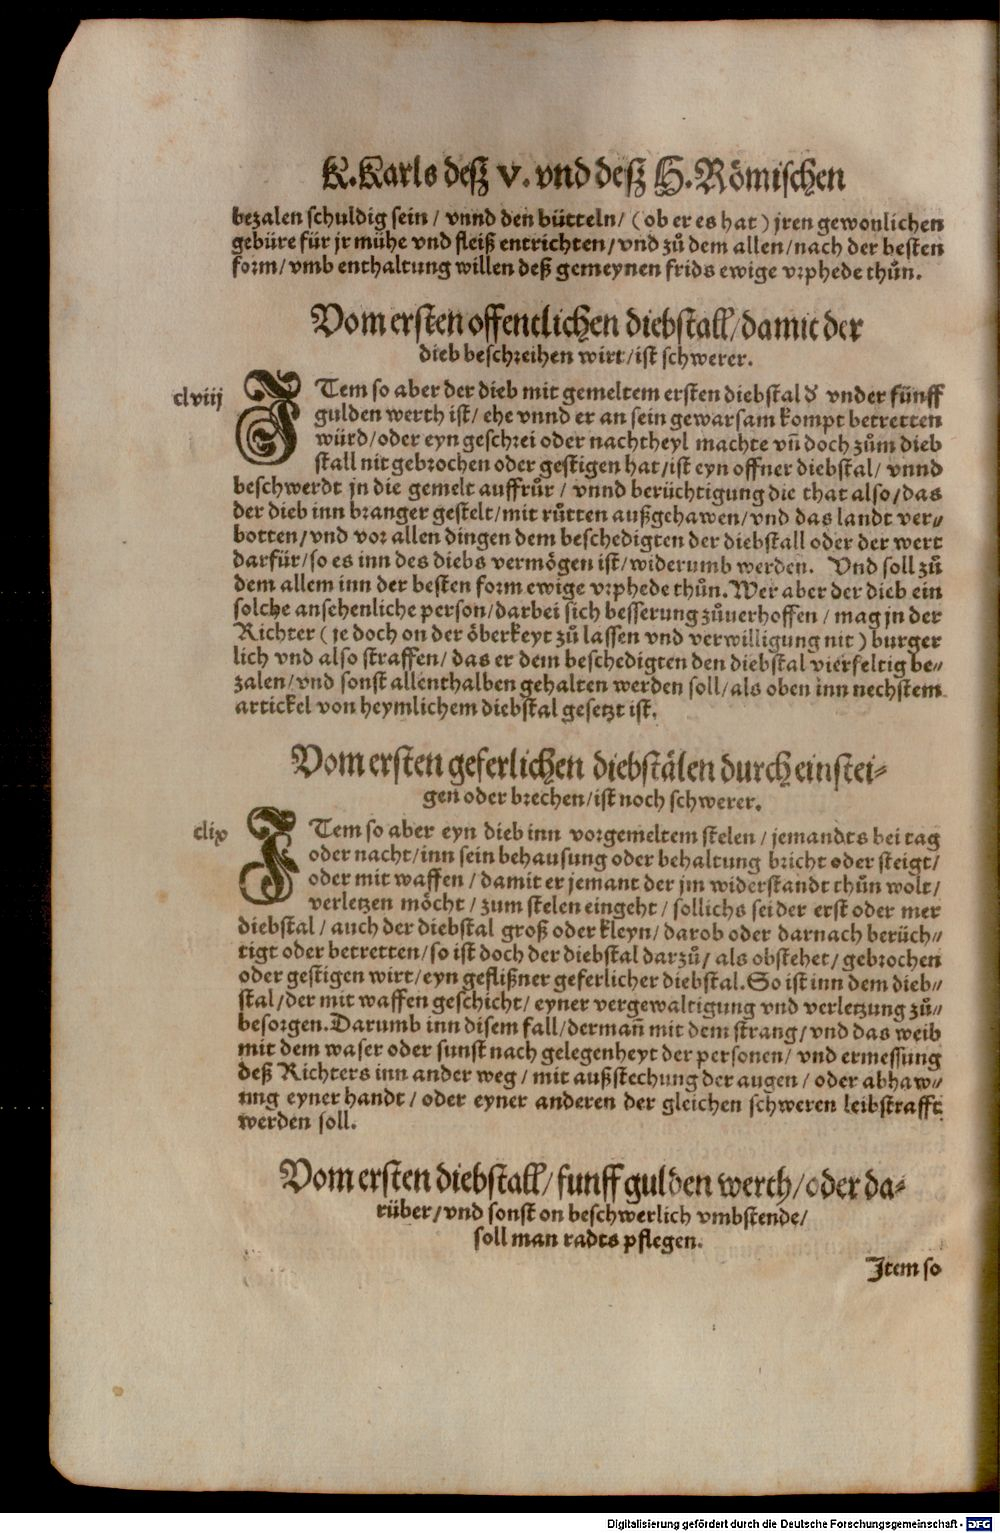 K. Karls desz V. vnd desz H. Römischen
bezalen schuldig sein / vnnd den bütteln / ( ob er es hat ) jren gewonlichen
gebüre für jr mühe vnd fleiß entrichten / vnd zů dem allen / nach der besten
form / vmb enthaltung willen deß gemeynen frids ewige vrphede thůn.
Vom ersten offentlichen diebstall / damit der
dieb beschreihen wirt / ist schwerer.
clviij
ITem so aber der dieb mit gemeltem ersten diebstal d vnder fünff
gulden werth ist / ehe vnnd er an sein gewarsam kompt betretten
würd / oder eyn geschrei oder nachtheyl machte vñ doch zům dieb
stall nit gebrochen oder gestigen hat / ist eyn offner diebstal / vnnd
beschwerdt jn die gemelt auffrůr / vnnd berüchtigung die that also / das
der dieb inn branger gestelt / mit růtten außgehawen / vnd das landt ver⸗
botten / vnd vor allen dingen dem beschedigten der diebstall oder der wert
darfür / so es inn des diebs vermögen ist / widerumb werden. Vnd soll zů
dem allem inn der besten form ewige vrphede thůn. Wer aber der dieb ein
solche ansehenliche person / darbei sich besserung zůuerhoffen / mag jn der
Richter ( je doch on der öberkeyt zů lassen vnd verwilligung nit ) burger
lich vnd also straffen / das er dem beschedigten den diebstal vierfeltig be⸗
zalen / vnd sonst allenthalben gehalten werden soll / als oben inn nechstem
artickel von heymlichem diebstal gesetzt ist.
Vom ersten geferlichen diebstälen durch einstei⸗
gen oder brechen / ist noch schwerer.
clix
ITem so aber eyn dieb inn vorgemeltem stelen / jemandts bei tag
oder nacht / inn sein behausung oder behaltung bricht oder steigt /
oder mit waffen / damit er jemant der jm widerstandt thůn wolt /
verletzen möcht / zum stelen eingeht / sollichs sei der erst oder mer
diebstal / auch der diebstal groß oder kleyn / darob oder darnach berüch⸗
tigt oder betretten / so ist doch der diebstal darzů / als obstehet / gebrochen
oder gestigen wirt / eyn geflißner geferlicher diebstal. So ist inn dem dieb⸗
stal / der mit waffen geschicht / eyner vergewaltigung vnd verletzung zů⸗
besorgen. Darumb inn disem fall / der mañ mit dem strang / vnd das weib
mit dem waser oder sunst nach gelegenheyt der personen / vnd ermessung
deß Richters inn ander weg / mit außstechung der augen / oder abhaw⸗
ung eyner handt / oder eyner anderen der gleichen schweren leibstrafft
werden soll.
Vom ersten diebstall / funff gulden werth / oder da⸗
rüber / vnd sonst on beschwerlich vmbstende /
soll man radts pflegen.
Jtem so
Digitalisierung gefördert durch die Deutsche Forschungsgemeinschaft - DFG